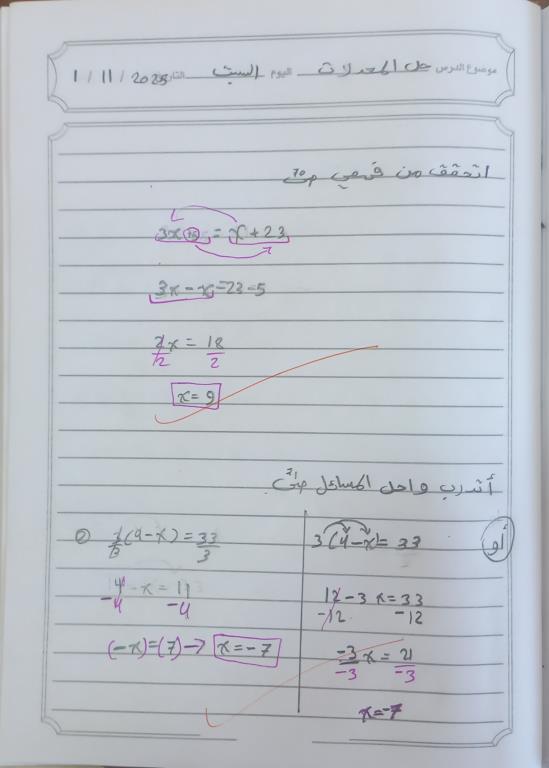 موضوع الدرس حل المعادلات اليوم السبت التاريخ 1 / 11 / 2025
اتحقق من فهمي ص70
3x+5 = x+23
3x - x = 23-5
2x/2 = 18/2
x = 9
أتدرب وأحل المسائل ص71
أو 3(4-x)= 33
12 - 3x = 33
-12 -12
-3x/-3 = 21/-3
x=-7
② 3/3(4-x) = 33/3
4 - x = 11
-4 -4
(-x)=(7) → x = -7